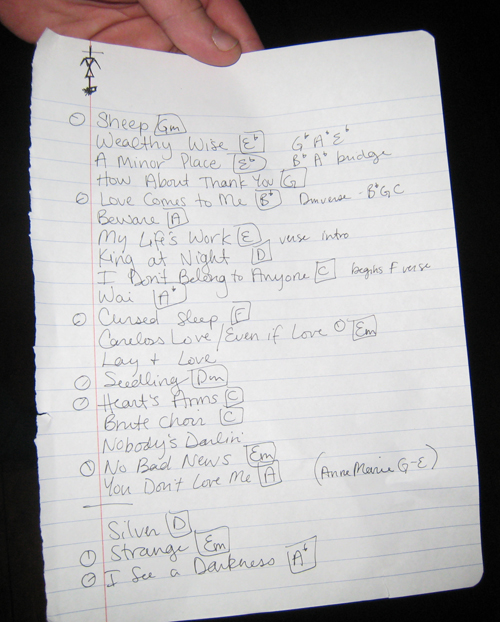 Sheep Gm
Wealthy Wise E♭ G♭ A♭ E♭
A Minor Place E♭ B♭ A♭ bridge
How About Thank You G
Love Comes to Me B♭ Dm verse - B♭ G C
Beware A
My Life's Work E verse intro
King at Night D
I Don't Belong to Anyone C begins F verse
Wai A♭
Cursed Sleep F
Careless Love / Even if Love Em
Lay + Love
Seedling Dm
Heart's Arms C
Brute Choir C
Nobody's Darlin
No Bad News Em
You Don't Love Me A (Anne Marie G-E)
Silver D
Strange Em
I See a Darkness A♭